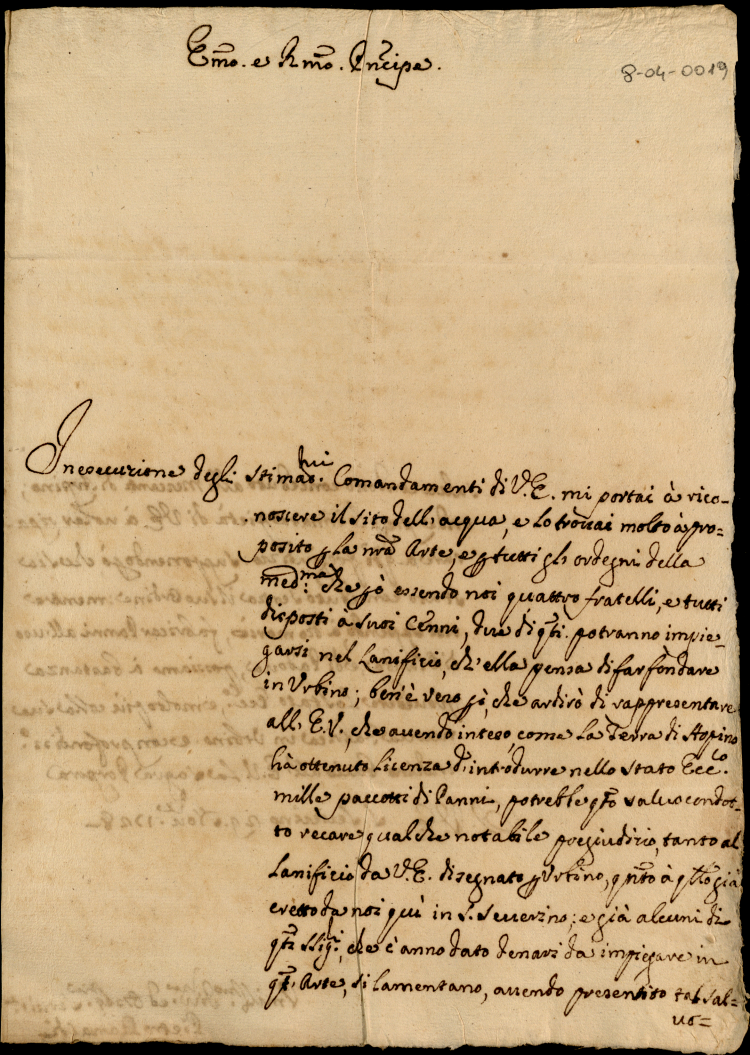 Em̃o. e Rm̃o. Pñcipe.
8-04-0019
In esecuzione degli stimat.mi Comandamenti di V.E. mi portai à rico-
noscere il sito dell'acqua, e lo trouai molto à pro=
posito p la nr̃a Arte, e p tutti gl'ordegni della
med.ma che però essendo noi quattro fratelli, e tutti
disposti à suoi Cenni, due di qti. potranno impie-
garsi nel Lanificio, ch'ella pensa di far fondare
in Urbino; ben'è vero però, che ardirò di rappresentare
all'E.V., che auendo inteso, come la Terra di
hà ottenuto Licenza d'introdurre nello stato Eccl.o
mille paccotti di Panni, potrebbe qto saluocondot-
to recare qualche notabile pregiudizio, tanto al
Lanificio da V.E. disegnato p Urbino, qnto à qllo già
eretto da noi quì in S. Seuerino; e già alcuni di
qti SSig.ri, che c'anno dato denari da impiegare in
qta Arte, si lamentano, auendo presentito tal sal=
uo=